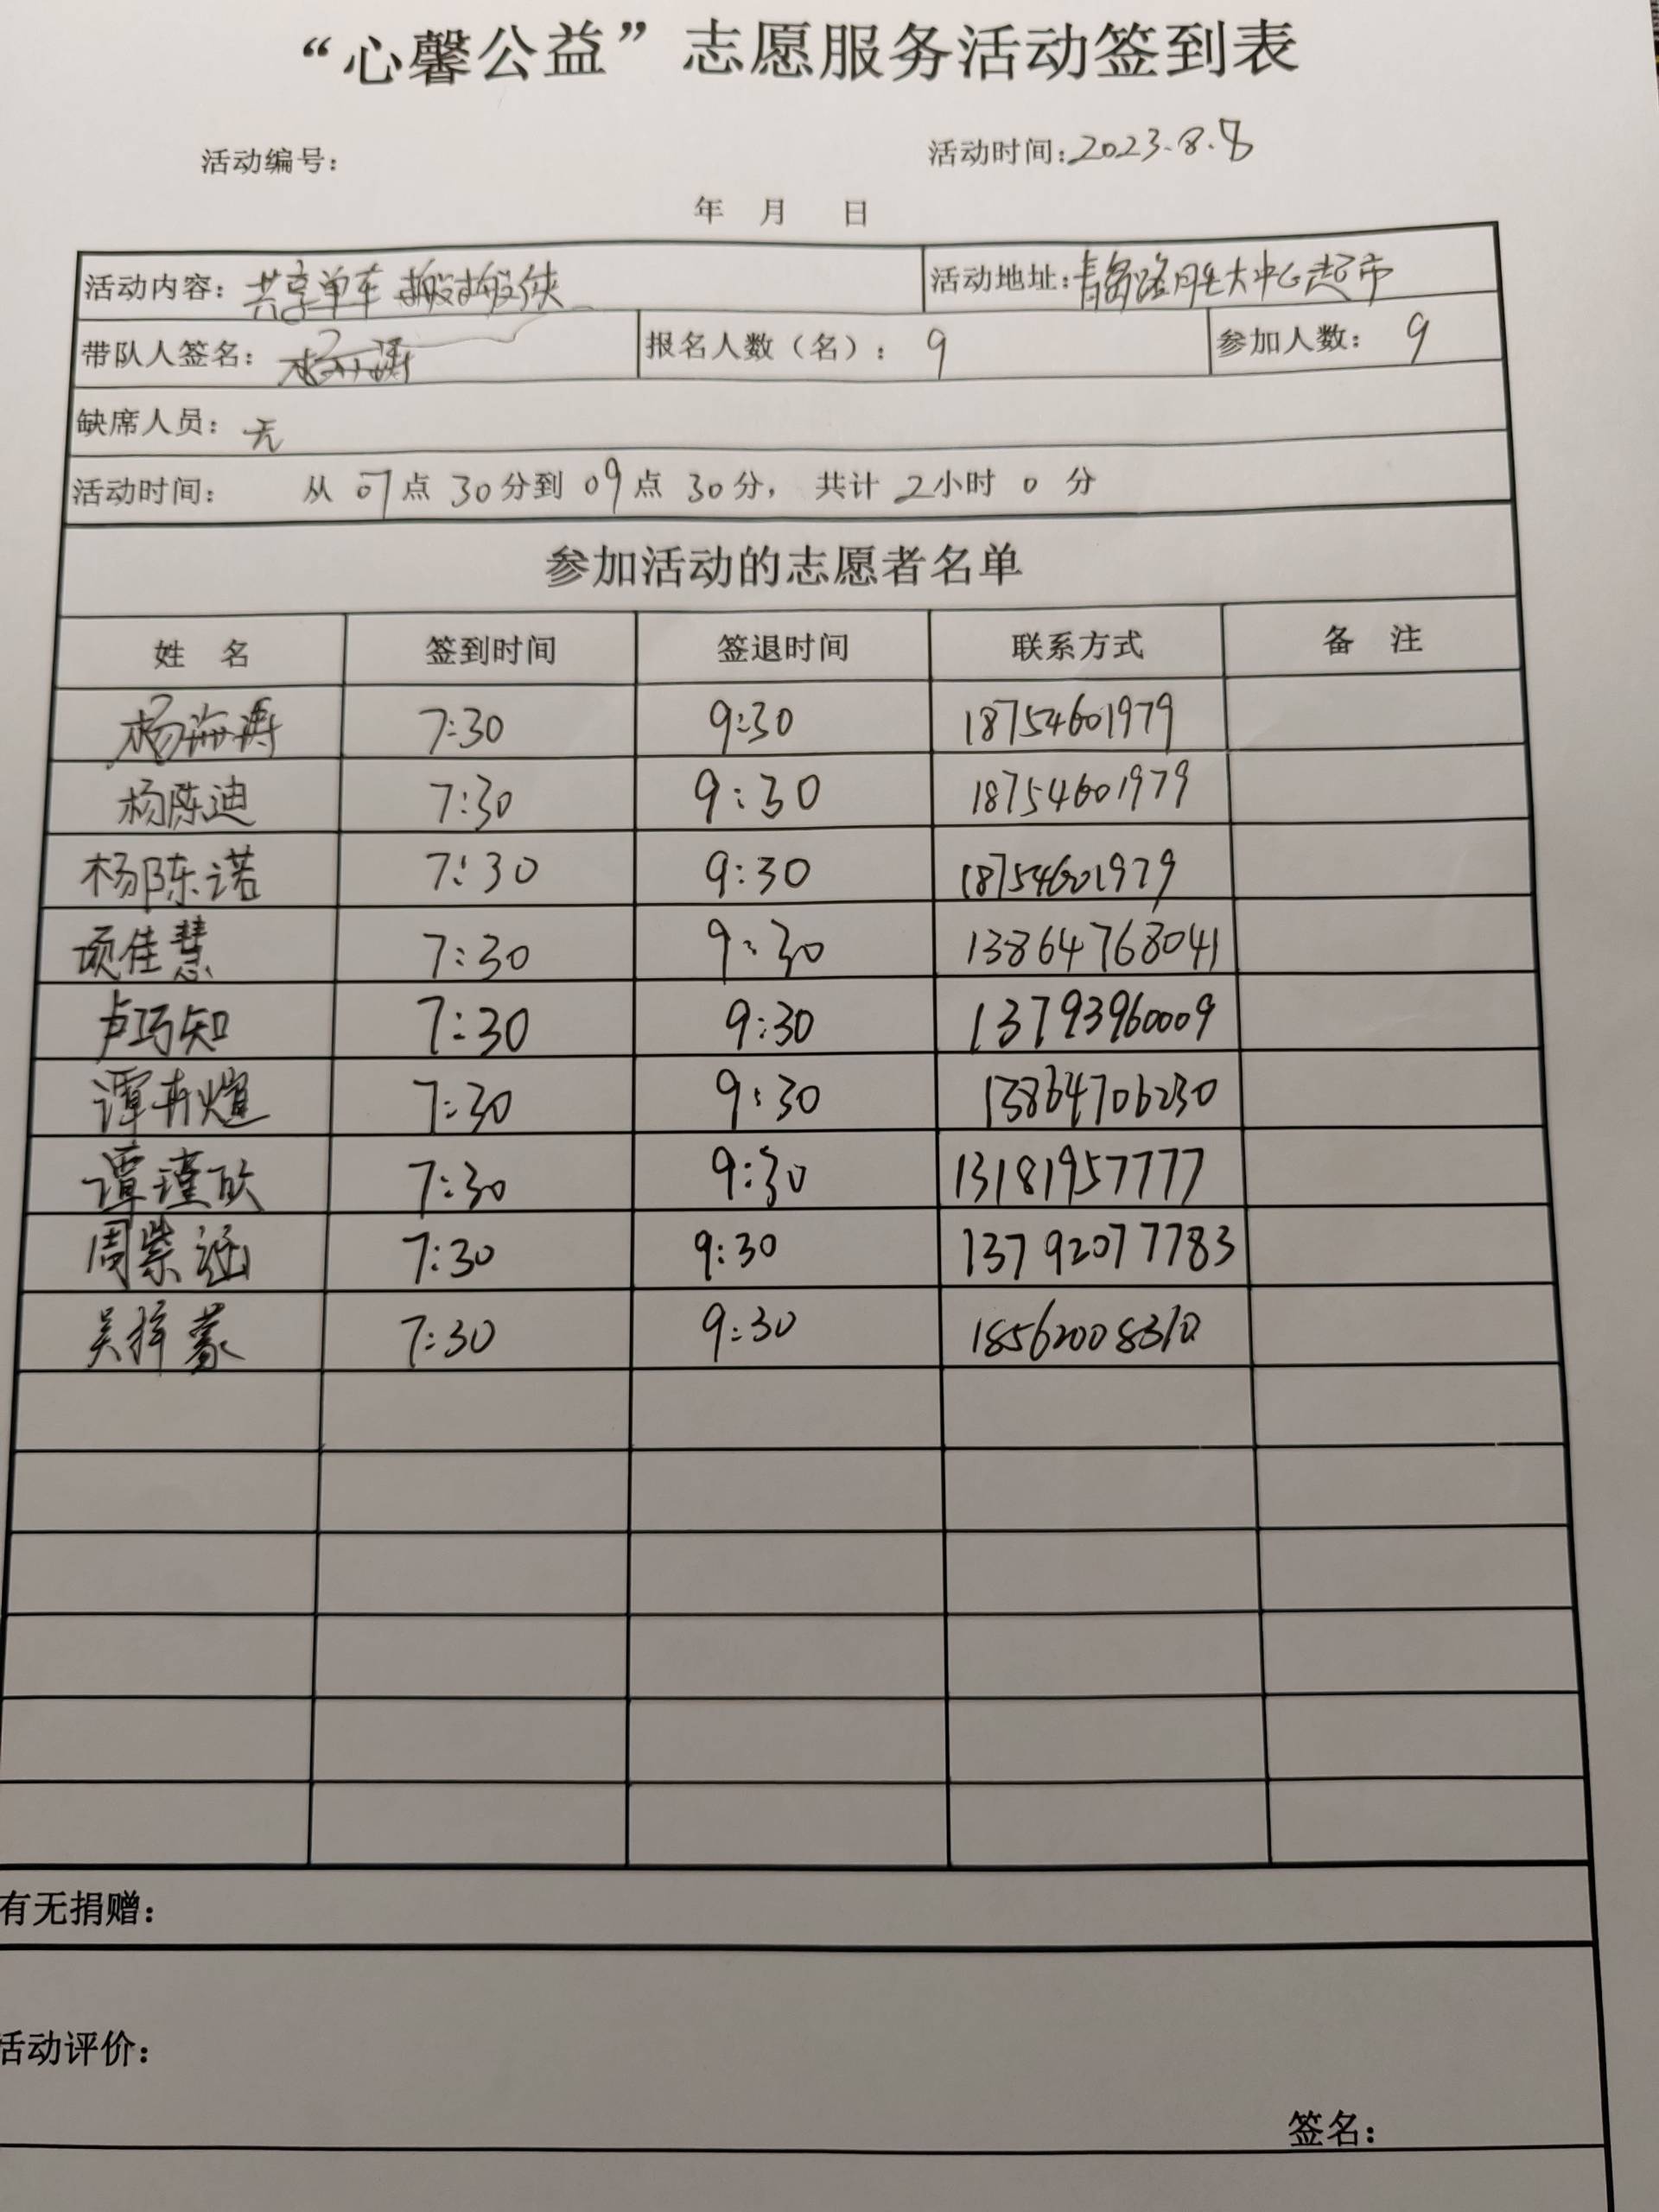 “心馨公益”志愿服务活动签到表
活动编号： 活动时间：2023.8.8
年 月 日
活动内容：共享单车搬搬侠 活动地址：青岛路胜大中心超市
带队人签名：杨海涛 报名人数（名）：9 参加人数：9
缺席人员：无
活动时间： 从 07点 30分到 09点 30分， 共计 2小时 0 分
参加活动的志愿者名单
姓 名 签到时间 签退时间 联系方式 备 注
杨海涛 7:30 9:30 18754601979
杨陈迪 7:30 9:30 18754601979
杨陈诺 7:30 9:30 18754601979
项佳慧 7:30 9:30 13864768041
卢巧知 7:30 9:30 13793960009
谭冉煊 7:30 9:30 13864706230
谭瑾欣 7:30 9:30 13181957777
周紫涵 7:30 9:30 13792077783
吴梓蒙 7:30 9:30
有无捐赠：
活动评价：
签名：